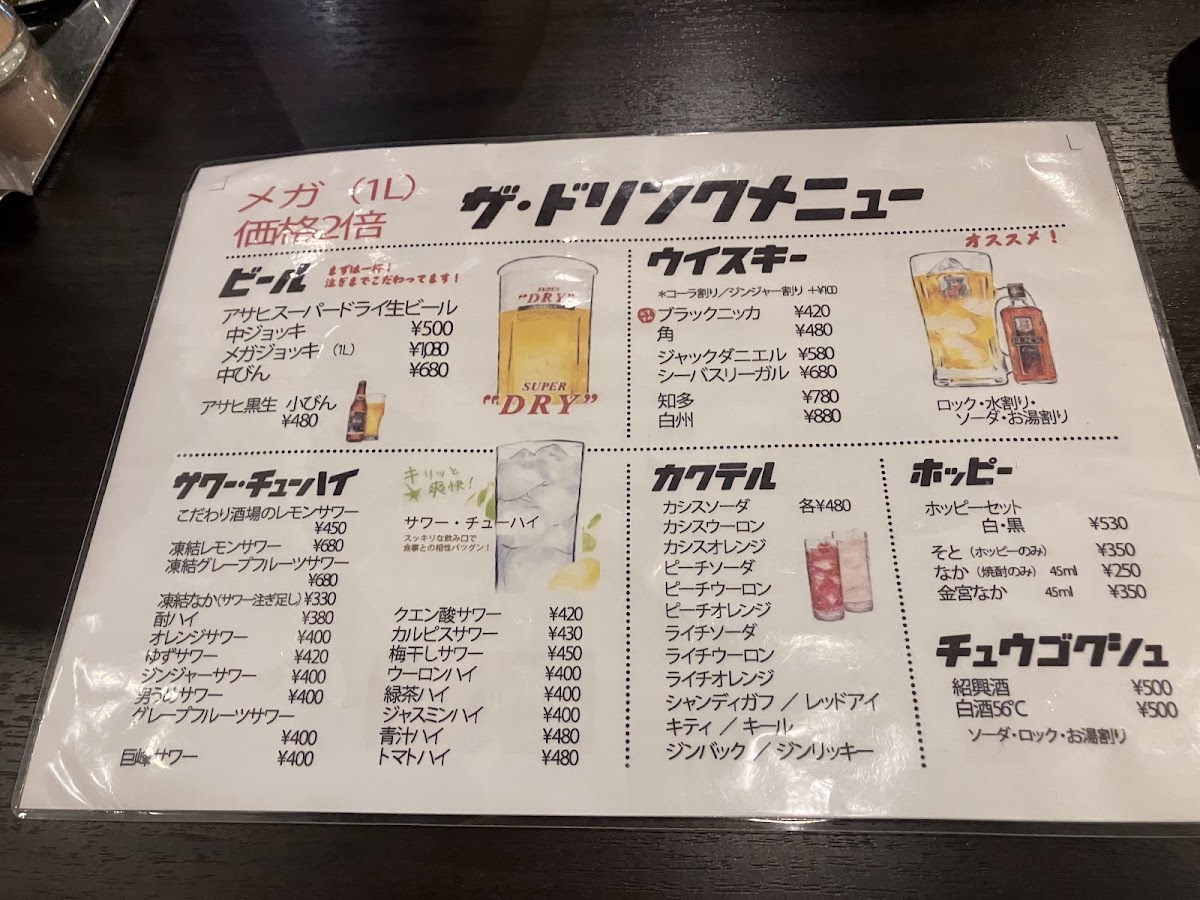 メガ (1L)
価格2倍
ザ・ドリンクメニュー
ビール
まずは一杯!
注ぎまでこだわってます!
アサヒスーパードライ生ビール
中ジョッキ ¥500
メガジョッキ (1L) ¥1,080
中びん ¥680
アサヒ黒生 小びん
¥480
SUPER
"DRY"
SUPER
"DRY"
ウイスキー
オススメ!
*コーラ割り/ジンジャー割り +¥100
ブラックニッカ ¥420
角 ¥480
ジャックダニエル ¥580
シーバスリーガル ¥680
知多 ¥780
白州 ¥880
ロック・水割り・
ソーダ・お湯割り
サワー・チューハイ
キリッと
爽快!
サワー・チューハイ
スッキリな飲み口で
食事との相性バツグン!
こだわり酒場のレモンサワー
¥450
凍結レモンサワー ¥680
凍結グレープフルーツサワー
¥680
凍結なか(サワー注ぎ足し) ¥330
酎ハイ ¥380
オレンジサワー ¥400
ゆずサワー ¥420
ジンジャーサワー ¥400
男うめサワー ¥400
グレープフルーツサワー
¥400
巨峰サワー ¥400
クエン酸サワー ¥420
カルピスサワー ¥430
梅干しサワー ¥450
ウーロンハイ ¥400
緑茶ハイ ¥400
ジャスミンハイ ¥400
青汁ハイ ¥480
トマトハイ ¥480
カクテル
カシスソーダ 各¥480
カシスウーロン
カシスオレンジ
ピーチソーダ
ピーチウーロン
ピーチオレンジ
ライチソーダ
ライチウーロン
ライチオレンジ
シャンディガフ / レッドアイ
キティ / キール
ジンバック / ジンリッキー
ホッピー
ホッピーセット
白・黒 ¥530
そと (ホッピーのみ) ¥350
なか (焼酎のみ) 45ml ¥250
金宮なか 45ml ¥350
チュウゴクシュ
紹興酒 ¥500
白酒56℃ ¥500
ソーダ・ロック・お湯割り